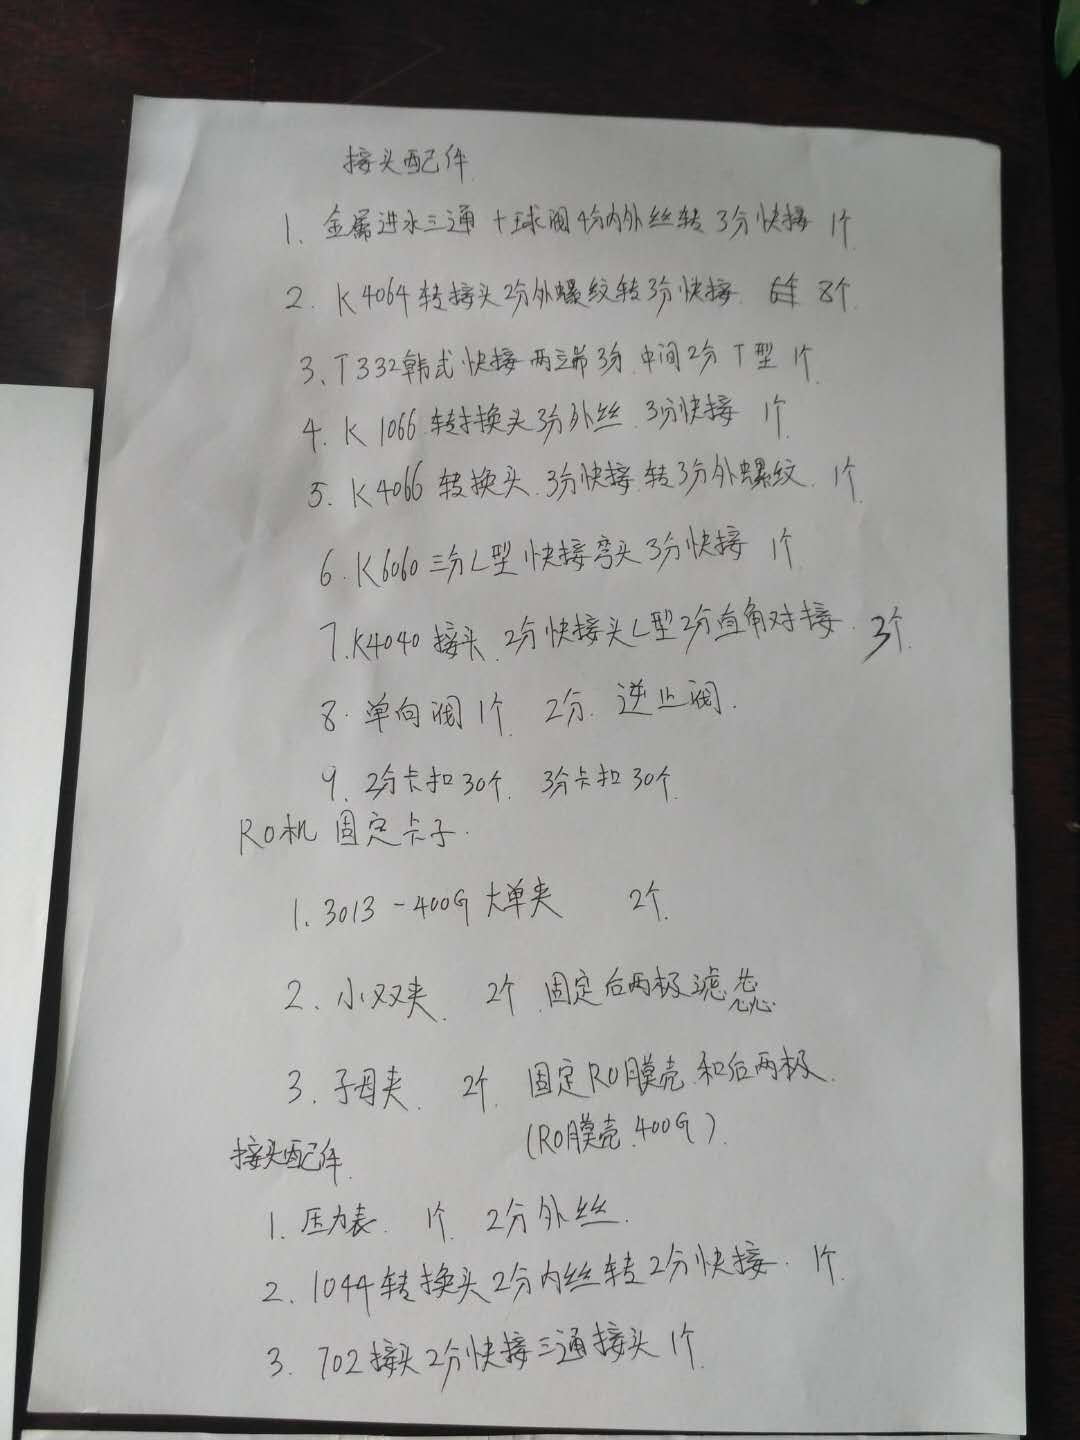 接头配件
1、金属进水三通+球阀4分内外丝转3分快接 1个
2、K4064转接头2分外螺纹转3分快接 8个
3、T332韩式快接两端3分 中间2分T型 1个
4、K1066 转换头3分外丝 3分快接 1个
5、K4066 转换头 3分快接 转3分外螺纹 1个
6、K6060 三分L型快接弯头3分快接 1个
7、K4040接头 2分快接头L型2分直角对接 3个
8、单向阀1个 2分 逆止阀
9、2分卡扣30个 3分卡扣30个
RO机固定卡子
1、3013-400G 大单夹 2个
2、小双夹 2个 固定后两极滤芯
3、子母夹 2个 固定RO膜壳和后两极
(RO膜壳 400G)
接头配件
1、压力表 1个 2分外丝
2、1044转换头2分内丝转2分快接 1个
3、702接头2分快接三通接头1个